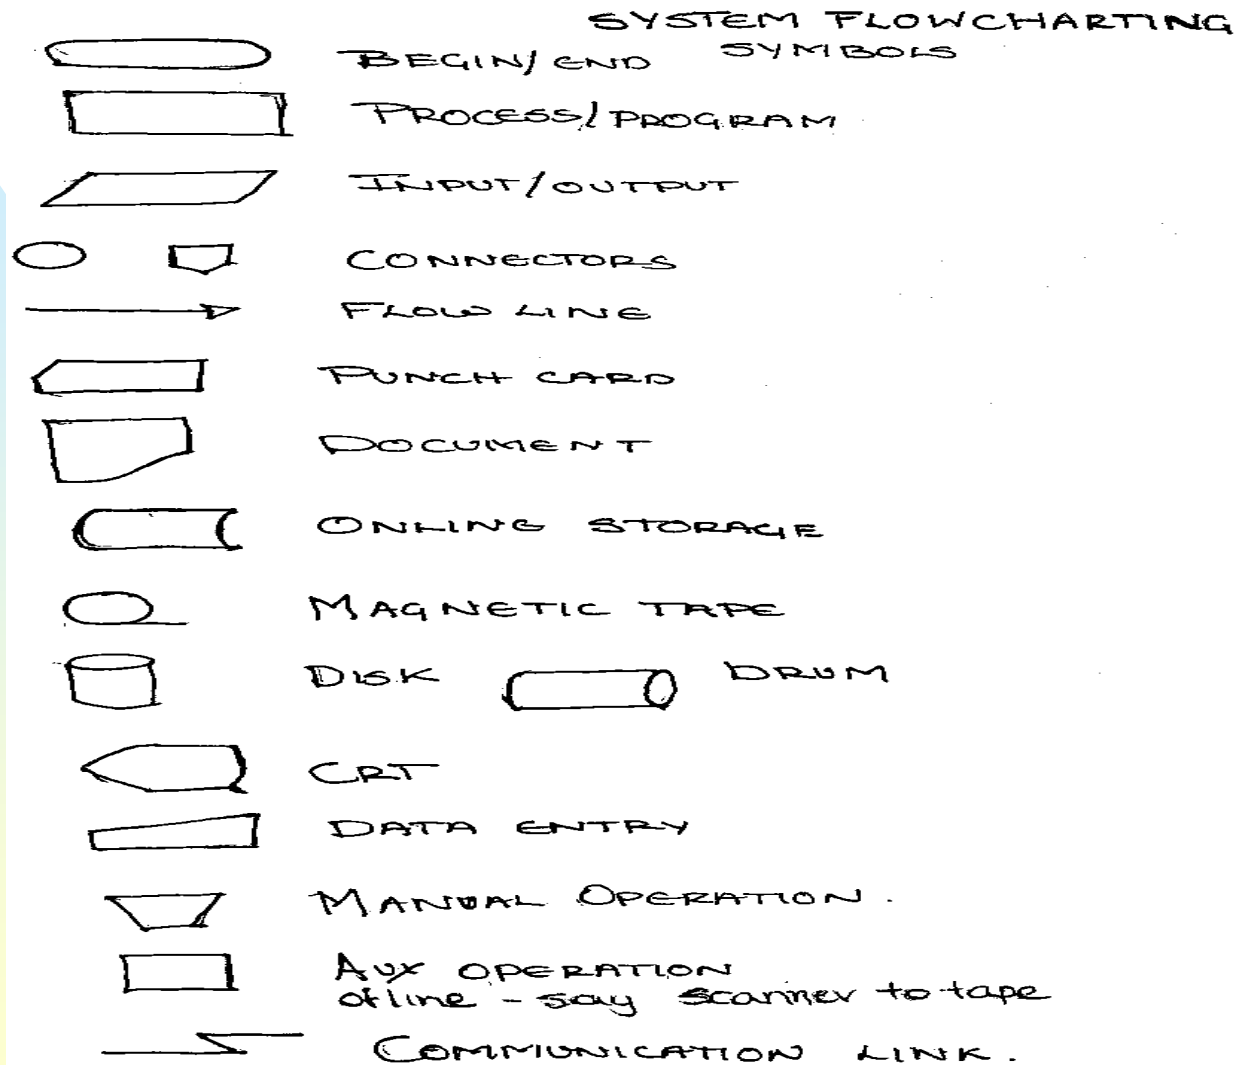 SYSTEM FLOWCHARTING
SYMBOLS
BEGIN/END
PROCESS/PROGRAM
INPUT/OUTPUT
CONNECTORS
FLOW LINE
PUNCH CARD
DOCUMENT
ONLINE STORAGE
MAGNETIC TAPE
DISK DRUM
CRT
DATA ENTRY
MANUAL OPERATION.
AUX OPERATION
ofline - say scanner to tape
COMMUNICATION LINK.